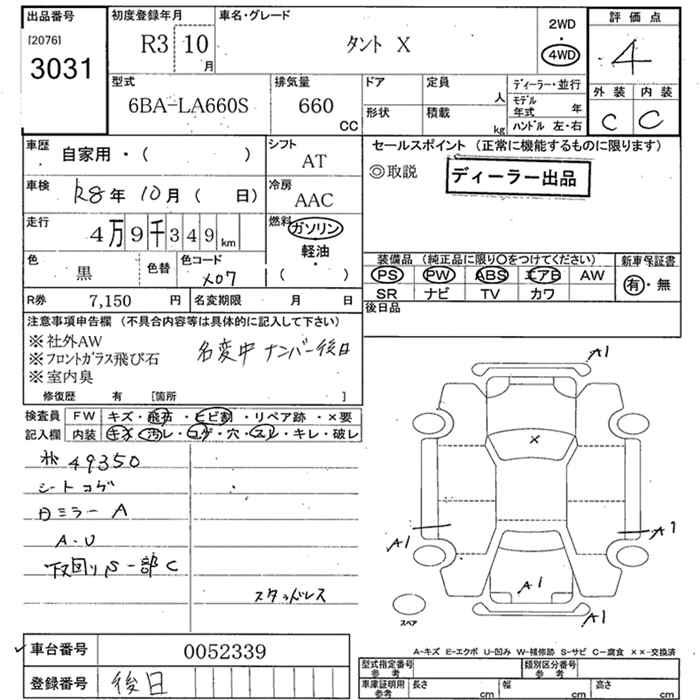 出品番号
[2076]
3031
初度登録年月
R3 10月
車名・グレード
タント X
2WD
・
4WD
評価点
4
外装 内装
C C
型式
6BA-LA660S
排気量
660
CC
ドア
形状
定員
人
積載
kg
ディーラー・並行
モデル
年式 年
ハンドル 左・右
車歴
自家用・( )
シフト
AT
車検
R8年10月( 日)
冷房
AAC
走行
4万9千349km
燃料
ガソリン
軽油
( ・ )
色
黒
色替
色コード
X07
R券 7,150 円
名変期限 月 日
セールスポイント (正常に機能するものに限ります)
◎取説
ディーラー出品
装備品 (純正品に限り○をつけてください)
PS PW ABS エアB AW
SR ナビ TV カワ
新車保証書
有・無
後日品
注意事項申告欄 (不具合内容等は具体的に記入して下さい)
※社外AW
※フロントガラス飛び石
※室内臭
名変中 ナンバー後日
修復歴 有 [箇所 ]
検査員
記入欄
FW キズ・飛石・ヒビ割・リペア跡・×要
内装 キズ・汚レ・コゲ・穴・スレ・キレ・破レ
49350
シートコゲ
ミラー A
A・U
下回りS 一部C
スタッドレス
A1
×
A1
A1
A1
A1
スペア
A-キズ E-エクボ U-凹み W-補修跡 S-サビ C-腐食 ××-交換済
車台番号
0052339
登録番号
後日
型式指定番号
参考
類別区分番号
参考
車庫証明用
参考
長さ cm
幅 cm
高さ cm